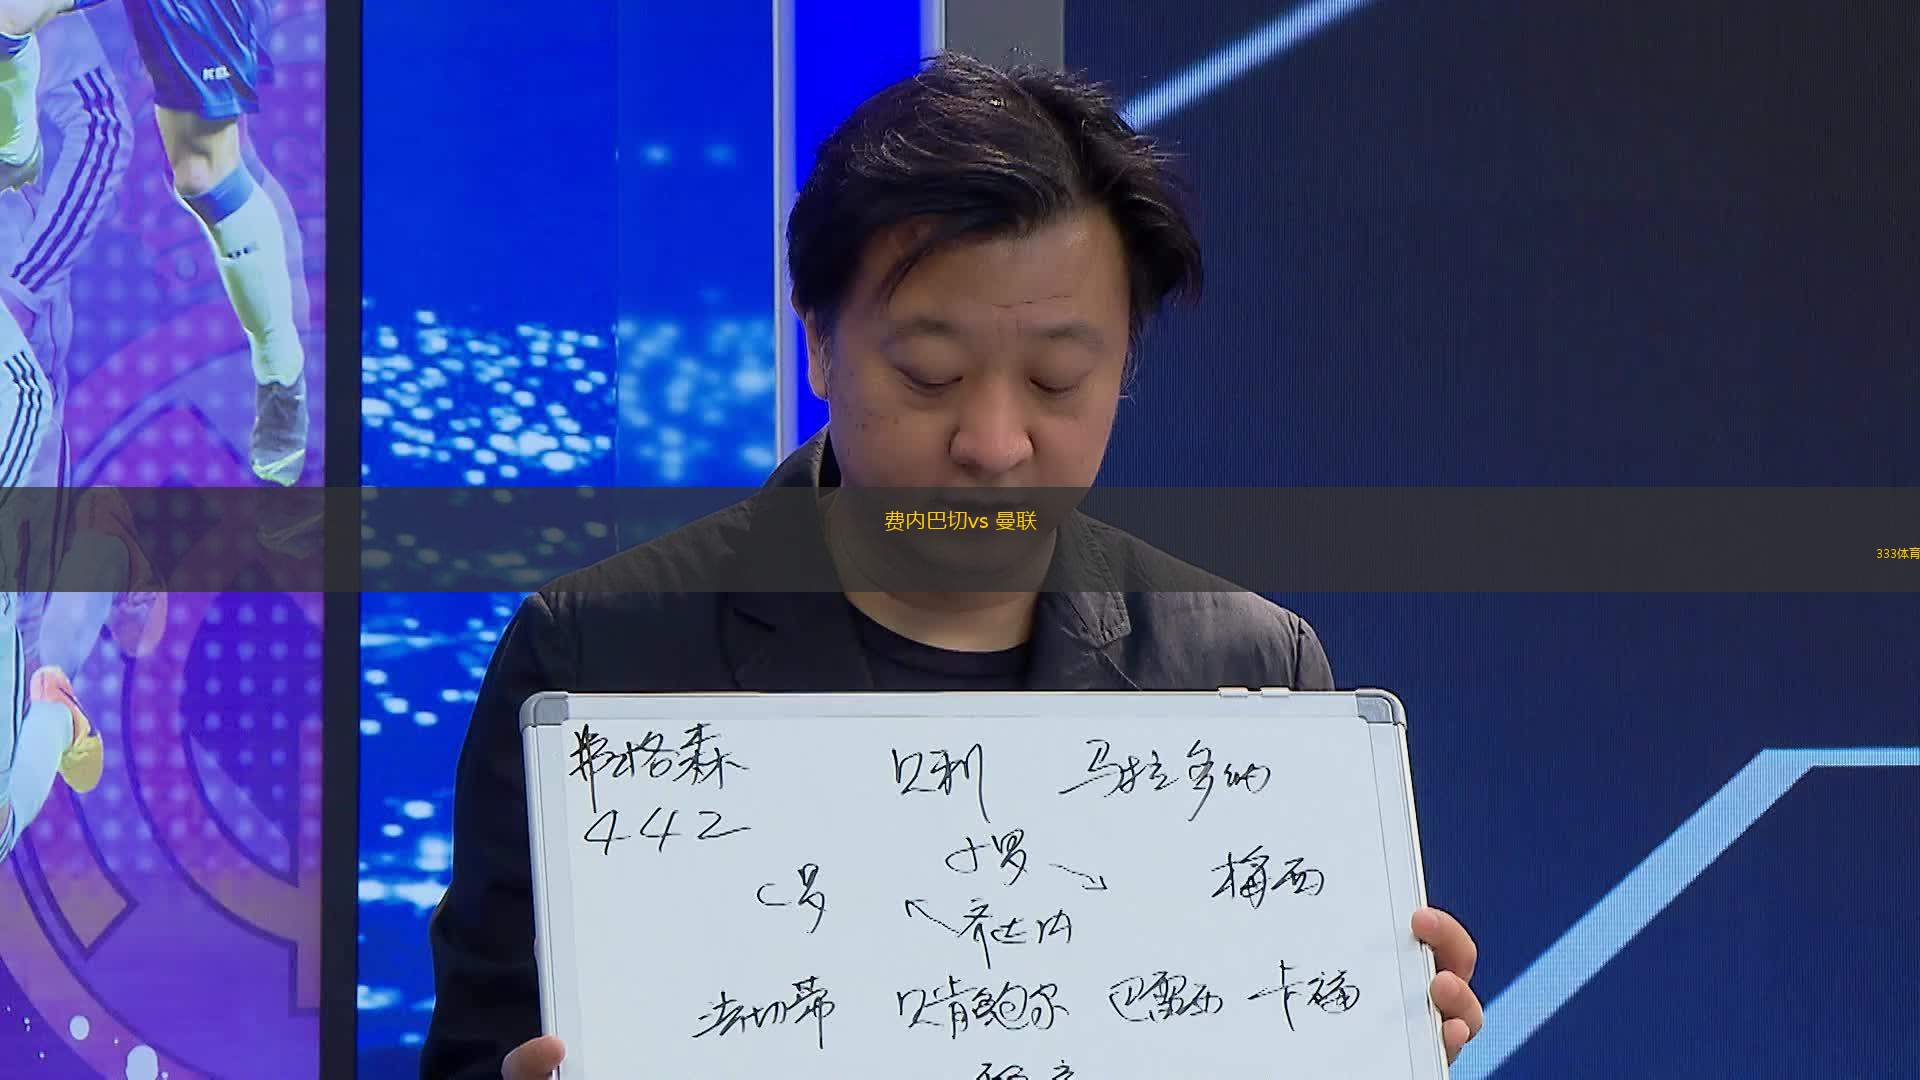 费内巴切vs 曼联
333体育
弗格森 贝利 马拉多纳
442
小罗
C罗 梅西
齐达内
法切蒂 贝肯鲍尔 巴雷西 卡福